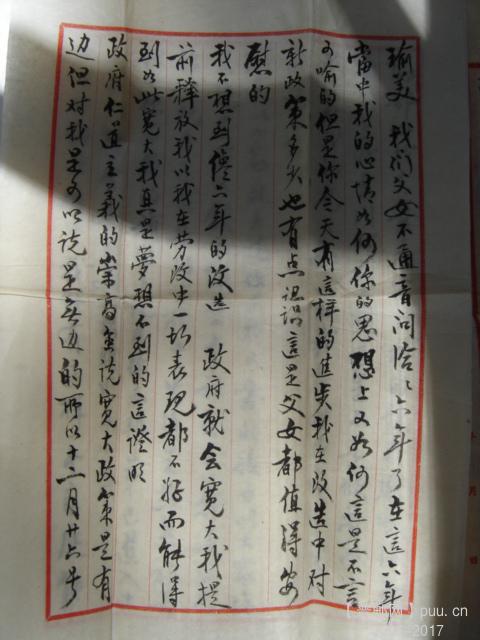 瑜美 我们父女不通音问洽洽六年了在這六年
當中我的心情如何你的思想上又如何這是不言
可喻的但是你今天有這样的進步我在改造中对
新政策多少也有点認識這是父女都值得安
慰的
我不想到僅六年的改造 政府就会寬大我提
前釋放我以我在劳改中一切表現都不好而能得
到如此寬大我真是夢想不到的這證明
政府仁道主義的崇高虽说寬大政策是有
边但对我是可以说是無边的所以十二月廿六号
【普邮网】puu.cn
2017